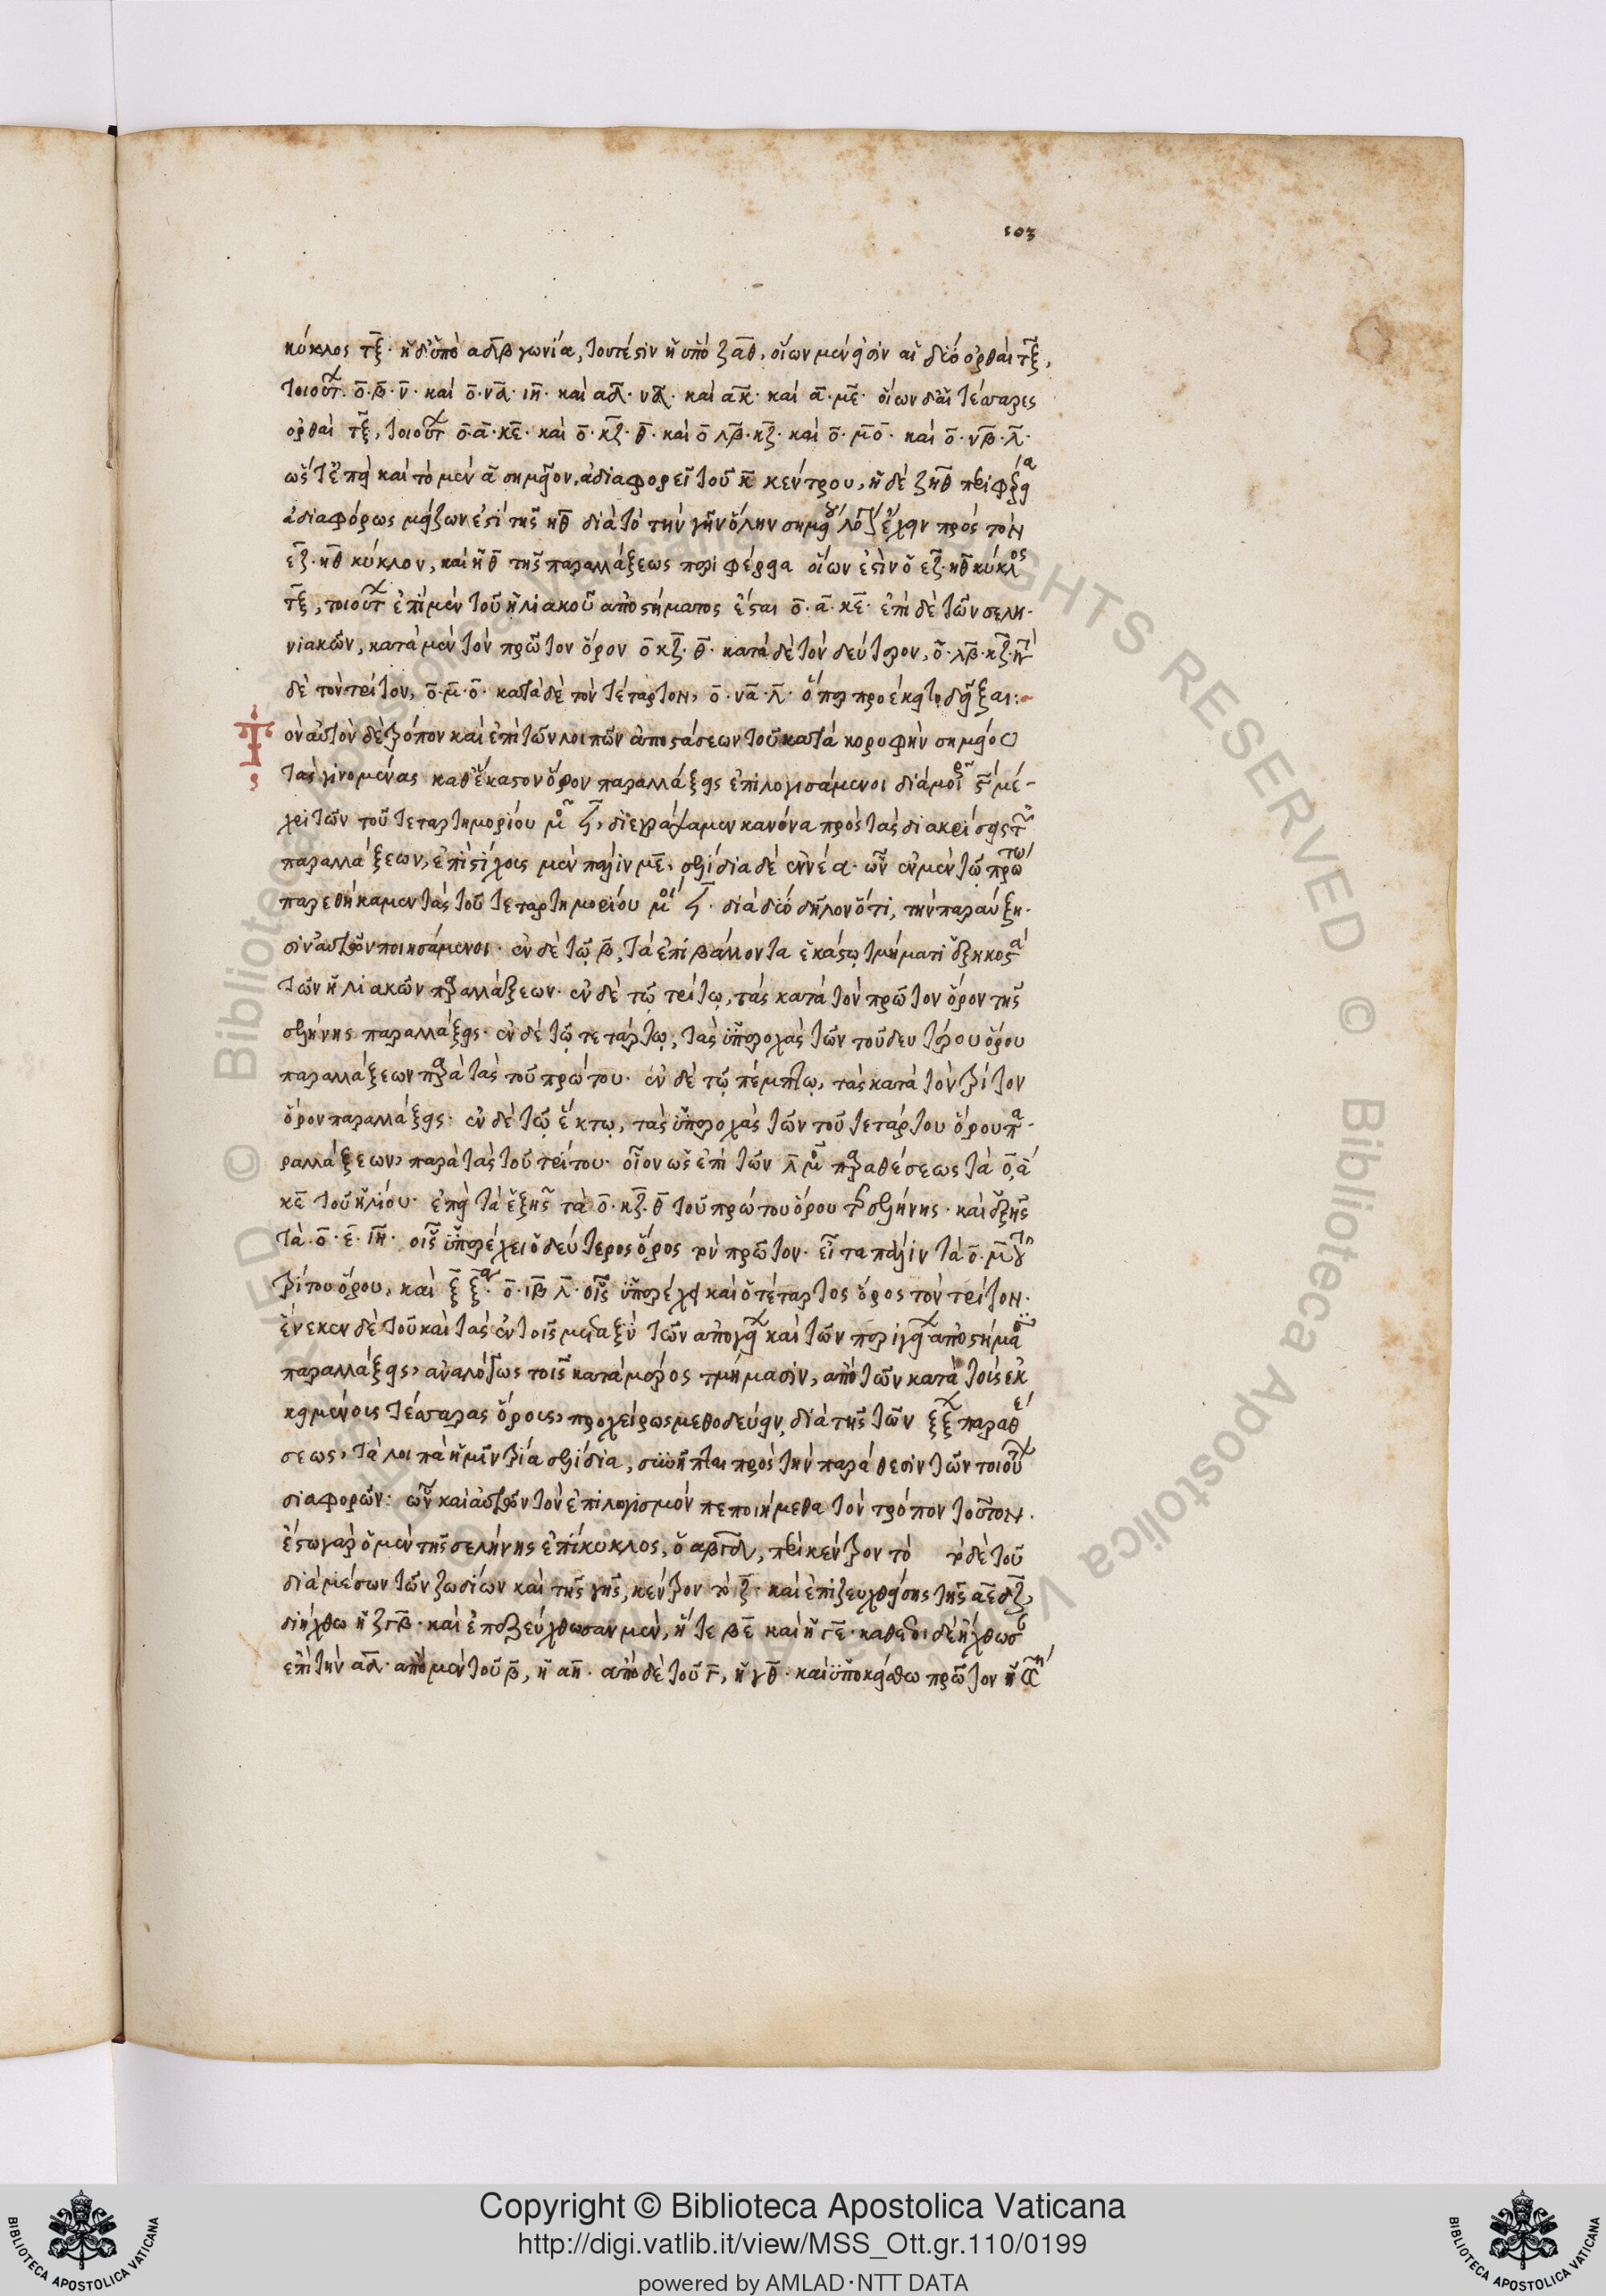 103
κύκλος τξ· ἡ δ' ὑπὸ αδβ γωνία, τουτέστιν ἡ ὑπὸ ζαθ, οἵων μέν εἰσιν αἱ δύο ὀρθαὶ τξ,
τοιουτ ο·β·ν· καὶ ο·νδ·ιη· καὶ αδ·νδ· καὶ ακ· καὶ α·με· οἵων δ' αἱ τέσσαρες
ὀρθαὶ τξ, τοιουτ ο·α·κε· καὶ ο·κζ·θ· καὶ ο λβ·κζ· καὶ ο·μ ο· καὶ ο·νβ·λ·
ὥστ' ἐπεὶ καὶ τὸ μὲν α σημεῖον, ἀδιαφορεῖ τοῦ κ κέντρου, ἡ δὲ ζηθ
ἀδιαφόρως μείζων ἐστὶ τῆς ηθ διὰ τὸ τὴν γῆν ὅλην σημείου λό ἔχειν πρὸς τὸν
εζ·ηθ κύκλον, καὶ ἡ ηθ τῆς παραλλάξεως περιφέρεια οἵων ἐστὶν ὁ εζ·ηθ κύκλος
τξ, τοιουτ ἐπὶ μὲν τοῦ ἡλιακοῦ ἀποστήματος ἔσται ο·α·κε· ἐπὶ δὲ τῶν σελη-
νιακῶν, κατὰ μὲν τὸν πρῶτον ὅρον ο κζ·θ· κατὰ δὲ τὸν δεύτερον, ο·λβ·κζ·
δὲ τὸν τρίτον, ο·μ·ο· κατὰ δὲ τὸν τέταρτον, ο·να·λ· ὅπερ προέκειτο δεῖξαι:
Τὸν αὐτὸν δὲ τρόπον καὶ ἐπὶ τῶν λοιπῶν ἀποστάσεων τοῦ κατὰ κορυφὴν σημείου
τὰς γινομένας καθ' ἕκαστον ὅρον παραλλάξεις ἐπιλογισάμενοι διὰ μοι ϛ μέ-
χρι τῶν τοῦ τεταρτημορίου μ ϟ, διεγράψαμεν κανόνα πρὸς τὰς διακρίσεις τῶν
παραλλάξεων, ἐπὶ στίχους μὲν πάλιν με, σελίδια δὲ ἐννέα· ὧν ἐν μὲν τῷ πρώτω
παρεθήκαμεν τὰς τοῦ τεταρτημορίου μοι ϟ· διὰ δύο δηλονότι, τὴν παραύξη-
σιν αὐτῶν ποιησάμενοι· ἐν δὲ τῷ β, τὰ ἐπιβάλλοντα ἑκάστῳ τμήματι ἑξηκοστα
τῶν ἡλιακῶν παραλλάξεων· ἐν δὲ τῷ τρίτῳ, τὰς κατὰ τὸν πρῶτον ὅρον τῆς
σελήνης παραλλάξεις· ἐν δὲ τῷ τετάρτῳ, τὰς ὑπεροχὰς τῶν τοῦ δευτέρου ὅρου
παραλλάξεων παρὰ τὰς τοῦ πρώτου· ἐν δὲ τῷ πέμπτῳ, τὰς κατὰ τὸν τρίτον
ὅρον παραλλάξεις· ἐν δὲ τῷ ἕκτῳ, τὰς ὑπεροχὰς τῶν τοῦ τετάρτου ὅρου πα-
ραλλάξεων, παρὰ τὰς τοῦ τρίτου· οἷον ὡς ἐπὶ τῶν λ μ παραθέσεως τὰ ο, α
κε τοῦ ἡλίου· ἐπεὶ τὰ ἑξῆς τὰ ο·κζ·θ τοῦ πρώτου ὅρου τῆς σελήνης· καὶ ἑξῆς
τὰ ο·ε·ιη· οἷς ὑπερέχει ὁ δεύτερος ὅρος τὸν πρῶτον· εἶτα πάλιν τὰ ο·μ
τρίτου ὅρου, καὶ ξ ξ· ο·ιβ λ· οἷς ὑπερέχει καὶ ὁ τέταρτος ὅρος τὸν τρίτον·
ἕνεκεν δὲ τοῦ καὶ τὰς ἐν τοῖς μεταξὺ τῶν ἀπογ καὶ τῶν περιγ ἀποστήμα
παραλλάξεις, ἀναλόγως τοῖς κατὰ μέρος τμήμασιν, ἀπὸ τῶν κατὰ τοὺς ἐκ
κειμένους τέσσαρας ὅρους, προχείρως μεθοδεύειν, διὰ τῆς τῶν ξξ παραθέ
σεως, τὰ λοιπὰ ἡμῖν τρία σελίδια, συνῆπται πρὸς τὴν παράθεσιν τῶν τοιουτ
διαφορῶν: ὧν καὶ αὐτῶν τὸν ἐπιλογισμὸν πεποιήμεθα τὸν τρόπον τοῦτον.
ἔστω γὰρ ὁ μὲν τῆς σελήνης ἐπίκυκλος, ὁ αβγδ, περὶ κέντρον τὸ τὸ δὲ τοῦ
διὰ μέσων τῶν ζωδίων καὶ τῆς γῆς, κέντρον τὸ ζ· καὶ ἐπιζευχθείσης τῆς αεδζ,
διήχθω ἡ ζγβ· καὶ ἐπεζεύχθωσαν μὲν, ἥ τε βε καὶ ἡ γε· κάθετοι δὲ ἤχθωσ
ἐπὶ τὴν αδ· ἀπὸ μὲν τοῦ β, ἡ αη· ἀπὸ δὲ τοῦ γ, ἡ γθ· καὶ ὑποκείσθω πρῶτον ἡ
Copyright © Biblioteca Apostolica Vaticana
http://digi.vatlib.it/view/MSS_Ott.gr.110/0199
powered by AMLAD·NTT DATA
BIBLIOTECA APOSTOLICA VATICANA
BIBLIOTECA APOSTOLICA VATICANA